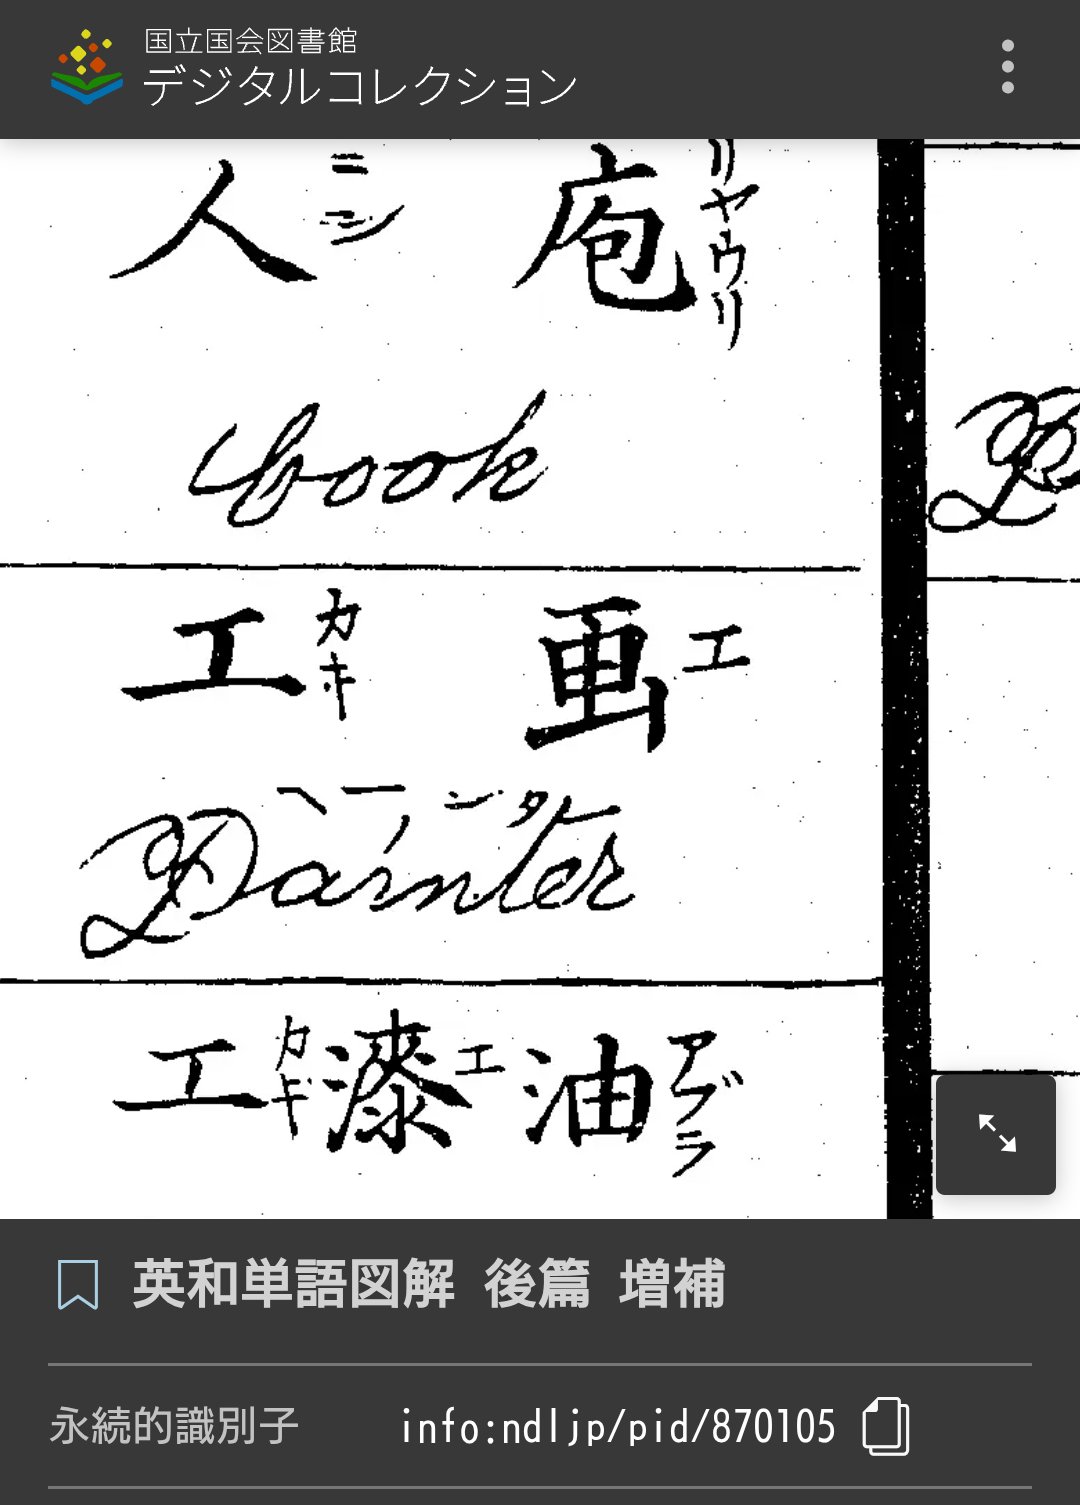 国立国会図書館
デジタルコレクション
リヤウリ ニン
庖人
book
エ カキ
画工
ヘーンター
Painter
アブラ エ カギ
油漆工
英和単語図解 後篇 増補
永続的識別子 info:ndljp/pid/870105